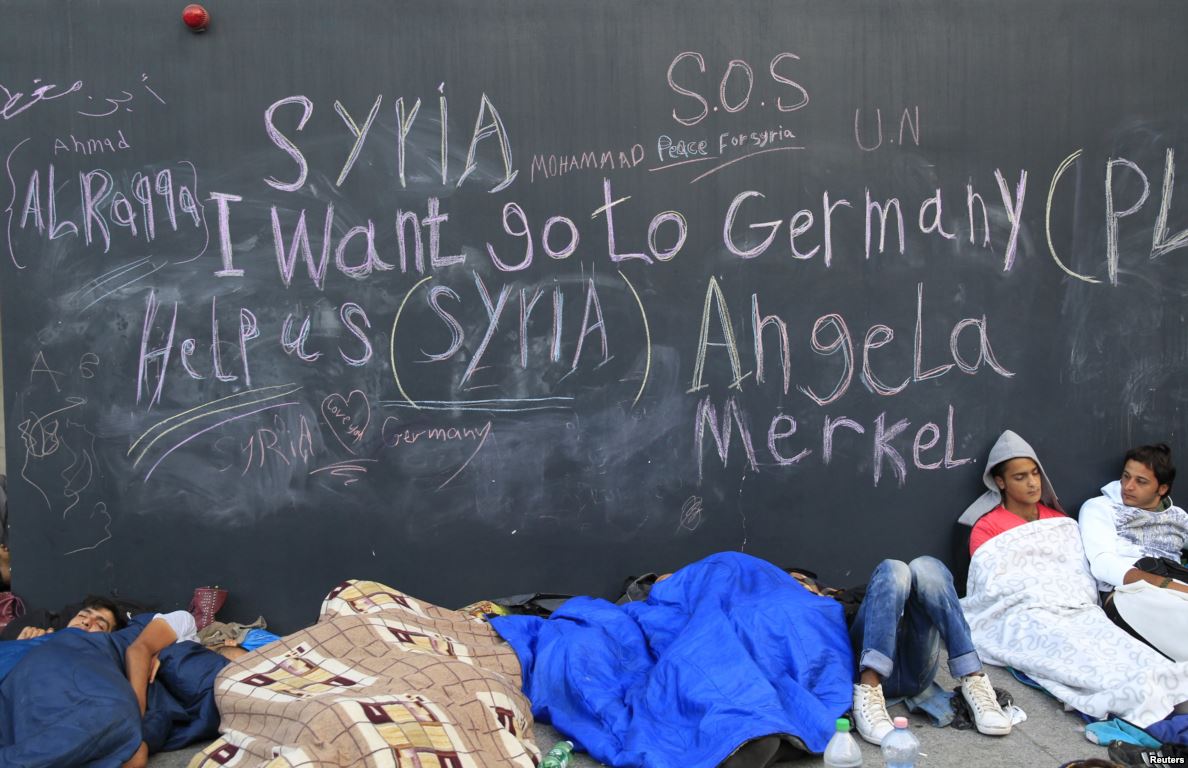 S.O.S
أبن
Ahmad
SYRiA
MOHAMMAD Peace For syria
U.N
(ALRaqqa)
I Want go to Germany (PL
Help us (SYRIA) Angela
Merkel
A 6
SYRiA Love you Germany
Reuters